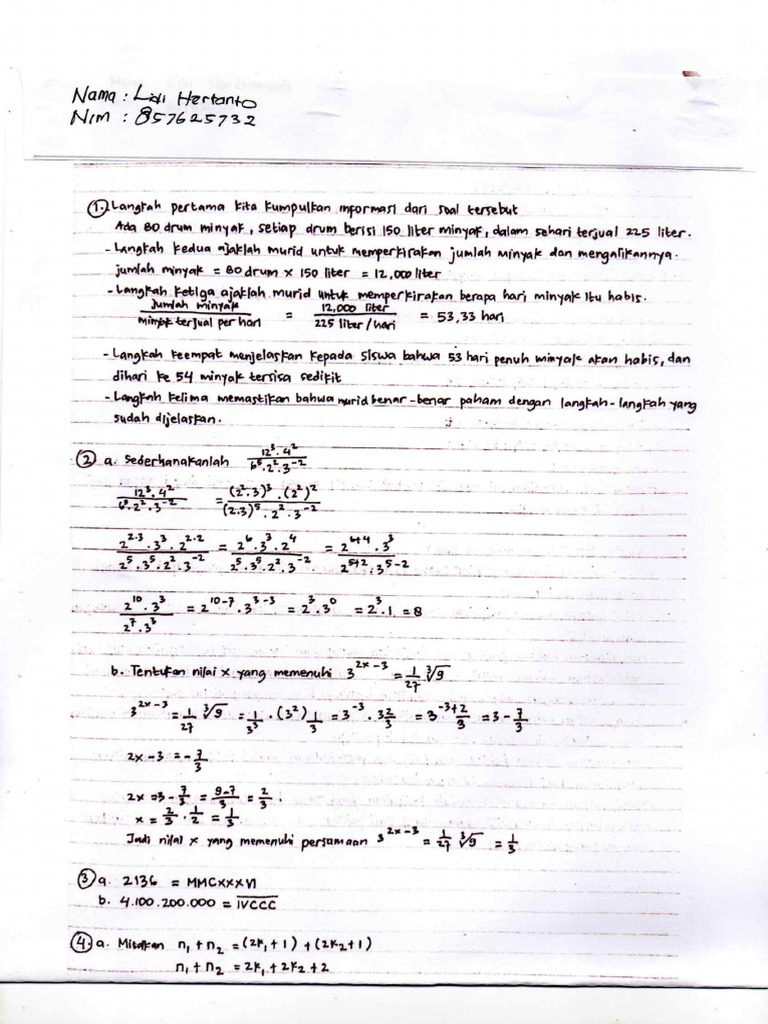 Nama : Lidi Hartanto
NIM : 857625732
1. Langkah pertama kita kumpulkan informasi dari soal tersebut
Ada 80 drum minyak, setiap drum berisi 150 liter minyak, dalam sehari terjual 225 liter.
- Langkah kedua ajaklah murid untuk memperkirakan jumlah minyak dan mengalikannya.
jumlah minyak = 80 drum x 150 liter = 12,000 liter
- Langkah ketiga ajaklah murid untuk memperkirakan berapa hari minyak itu habis.
jumlah minyak / minyak terjual per hari = 12,000 liter / 225 liter/hari = 53,33 hari
- Langkah keempat menjelaskan kepada siswa bahwa 53 hari penuh minyak akan habis, dan
dihari ke 54 minyak tersisa sedikit
- Langkah kelima memastikan bahwa murid benar-benar paham dengan langkah-langkah yang
sudah dijelaskan.
2 a. Sederhanakanlah 12³·4² / 6⁵·2²·3⁻²
12³·4² / 6⁵·2²·3⁻² = (2²·3)³·(2²)² / (2·3)⁵·2²·3⁻²
2²·³·3³·2²·² / 2⁵·3⁵·2²·3⁻² = 2⁶·3³·2⁴ / 2⁵·3⁵·2²·3⁻² = 2⁶⁺⁴·3³ / 2⁵⁺²·3⁵⁻²
2¹⁰·3³ / 2⁷·3³ = 2¹⁰⁻⁷·3³⁻³ = 2³·3⁰ = 2³·1 = 8
b. Tentukan nilai x yang memenuhi 3²ˣ⁻³ = 1/27 ³√9
3²ˣ⁻³ = 1/27 ³√9 = 1/3³ · (3²) 1/3 = 3⁻³ · 3 2/3 = 3 -3+2/3 = 3 - 7/3
2x - 3 = - 7/3
2x = 3 - 7/3 = 9-7/3 = 2/3.
x = 2/3 · 1/2 = 1/3
Jadi nilai x yang memenuhi persamaan 3²ˣ⁻³ = 1/27 ³√9 = 1/3
3 a. 2136 = MMCXXXVI
b. 4.100.200.000 = I̅V̅C̅C̅C̅
4. a. Misalkan n₁ + n₂ = (2k₁+1) + (2k₂+1)
n₁ + n₂ = 2k₁ + 2k₂ + 2